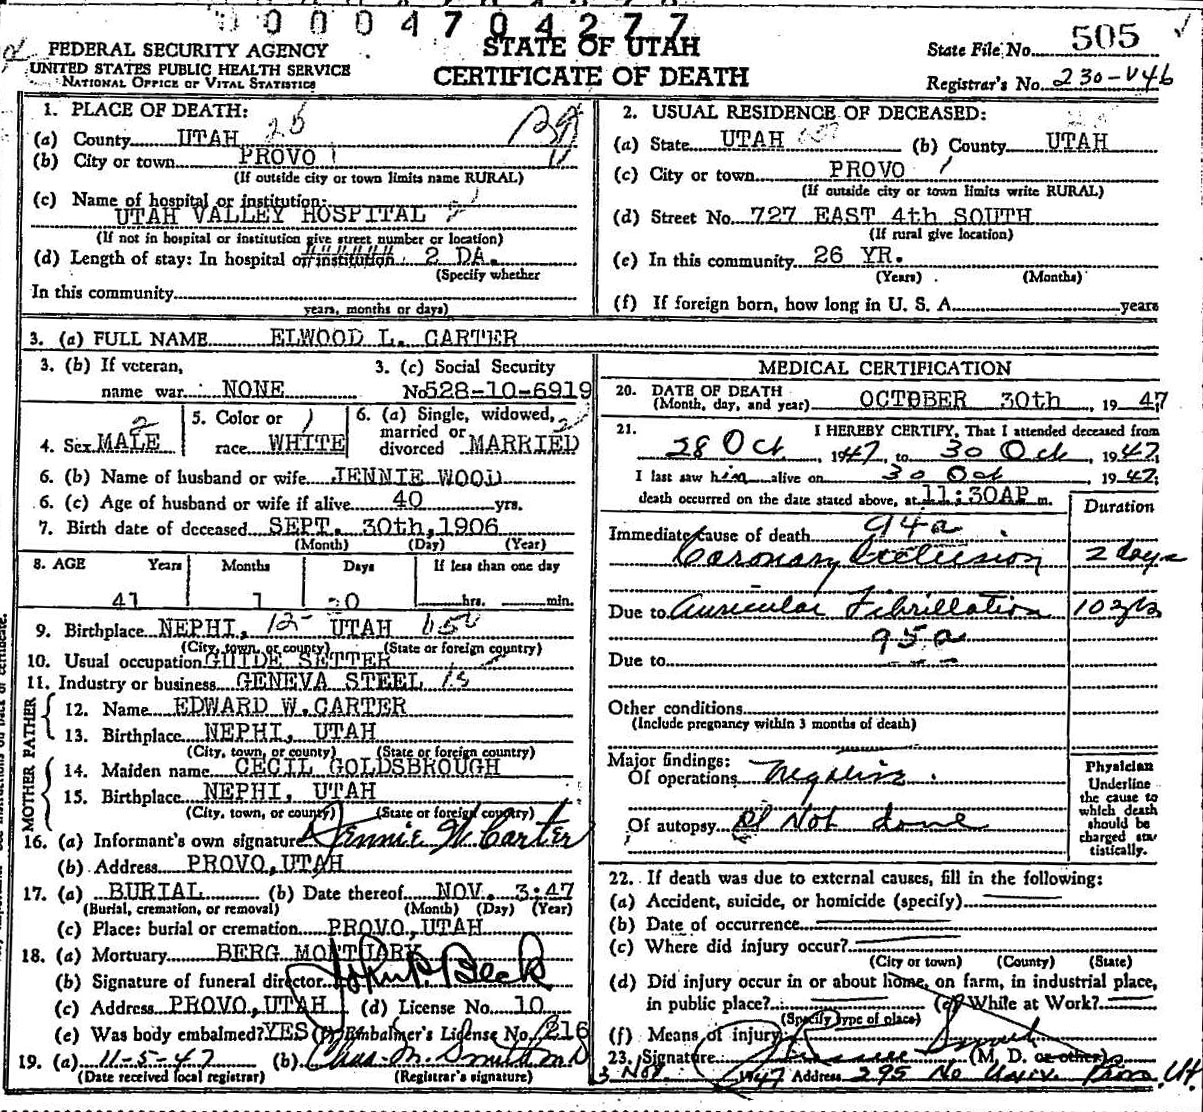 0000470427 7
FEDERAL SECURITY AGENCY
UNITED STATES PUBLIC HEALTH SERVICE
NATIONAL OFFICE OF VITAL STATISTICS
STATE OF UTAH
CERTIFICATE OF DEATH
State File No. 505
Registrar's No. 230-V46
1. PLACE OF DEATH:
(a) County UTAH 25
(b) City or town PROVO
(If outside city or town limits name RURAL)
(c) Name of hospital or institution:
UTAH VALLEY HOSPITAL
(If not in hospital or institution give street number or location)
(d) Length of stay: In hospital or institution 2 DA.
(Specify whether
In this community
years, months or days)
2. USUAL RESIDENCE OF DECEASED:
(a) State UTAH (b) County UTAH
(c) City or town PROVO
(If outside city or town limits write RURAL)
(d) Street No. 727 EAST 4th SOUTH
(If rural give location)
(e) In this community 26 YR.
(Years) (Months)
(f) If foreign born, how long in U. S. A. years
3. (a) FULL NAME ELWOOD L. CARTER
3. (b) If veteran,
name war NONE
3. (c) Social Security
No 528-10-6919
4. Sex MALE 2
5. Color or
race WHITE 1
6. (a) Single, widowed,
married or
divorced MARRIED
6. (b) Name of husband or wife JENNIE WOOD
6. (c) Age of husband or wife if alive 40 yrs.
7. Birth date of deceased SEPT. 30th, 1906
(Month) (Day) (Year)
8. AGE Years Months Days If less than one day
41 1 0 hrs. min.
9. Birthplace NEPHI, 12 UTAH
(City, town, or county) (State or foreign country)
10. Usual occupation GUIDE SETTER
11. Industry or business GENEVA STEEL
FATHER
12. Name EDWARD W. CARTER
13. Birthplace NEPHI, UTAH
(City, town, or county) (State or foreign country)
MOTHER
14. Maiden name CECIL GOLDSBROUGH
15. Birthplace NEPHI, UTAH
(City, town, or county) (State or foreign country)
16. (a) Informant's own signature Jennie W. Carter
(b) Address PROVO, UTAH
17. (a) BURIAL (b) Date thereof NOV. 3:47
(Burial, cremation, or removal) (Month) (Day) (Year)
(c) Place: burial or cremation PROVO, UTAH
18. (a) Mortuary BERG MORTUARY
(b) Signature of funeral director John P. Beck
(c) Address PROVO, UTAH (d) License No. 10
(e) Was body embalmed? YES (f) Embalmer's License No. 216
19. (a) 11-5-47 (b) Chas. M. Smith M D
(Date received local registrar) (Registrar's signature)
MEDICAL CERTIFICATION
20. DATE OF DEATH
(Month, day, and year) OCTOBER 30th, 1947
21. I HEREBY CERTIFY, That I attended deceased from
28 Oct, 1947, to 30 Oct, 1947,
I last saw him alive on 30 Oct 1947;
death occurred on the date stated above, at 11:30AP m.
Duration
Immediate cause of death 94a
Coronary Occlusion 2 days
Due to Auricular Fibrillation
95a
Due to
Other conditions
(Include pregnancy within 3 months of death)
Major findings:
Of operations
Of autopsy Not done
Physician
Underline
the cause to
which death
should be
charged sta-
tistically.
22. If death was due to external causes, fill in the following:
(a) Accident, suicide, or homicide (specify)
(b) Date of occurrence
(c) Where did injury occur?
(City or town) (County) (State)
(d) Did injury occur in or about home, on farm, in industrial place,
in public place? (e) While at Work?
(Specify type of place)
(f) Means of injury
23. Signature (M. D. or other)
3 Nov. 1947 Address 295 No Univ. Prov. Ut